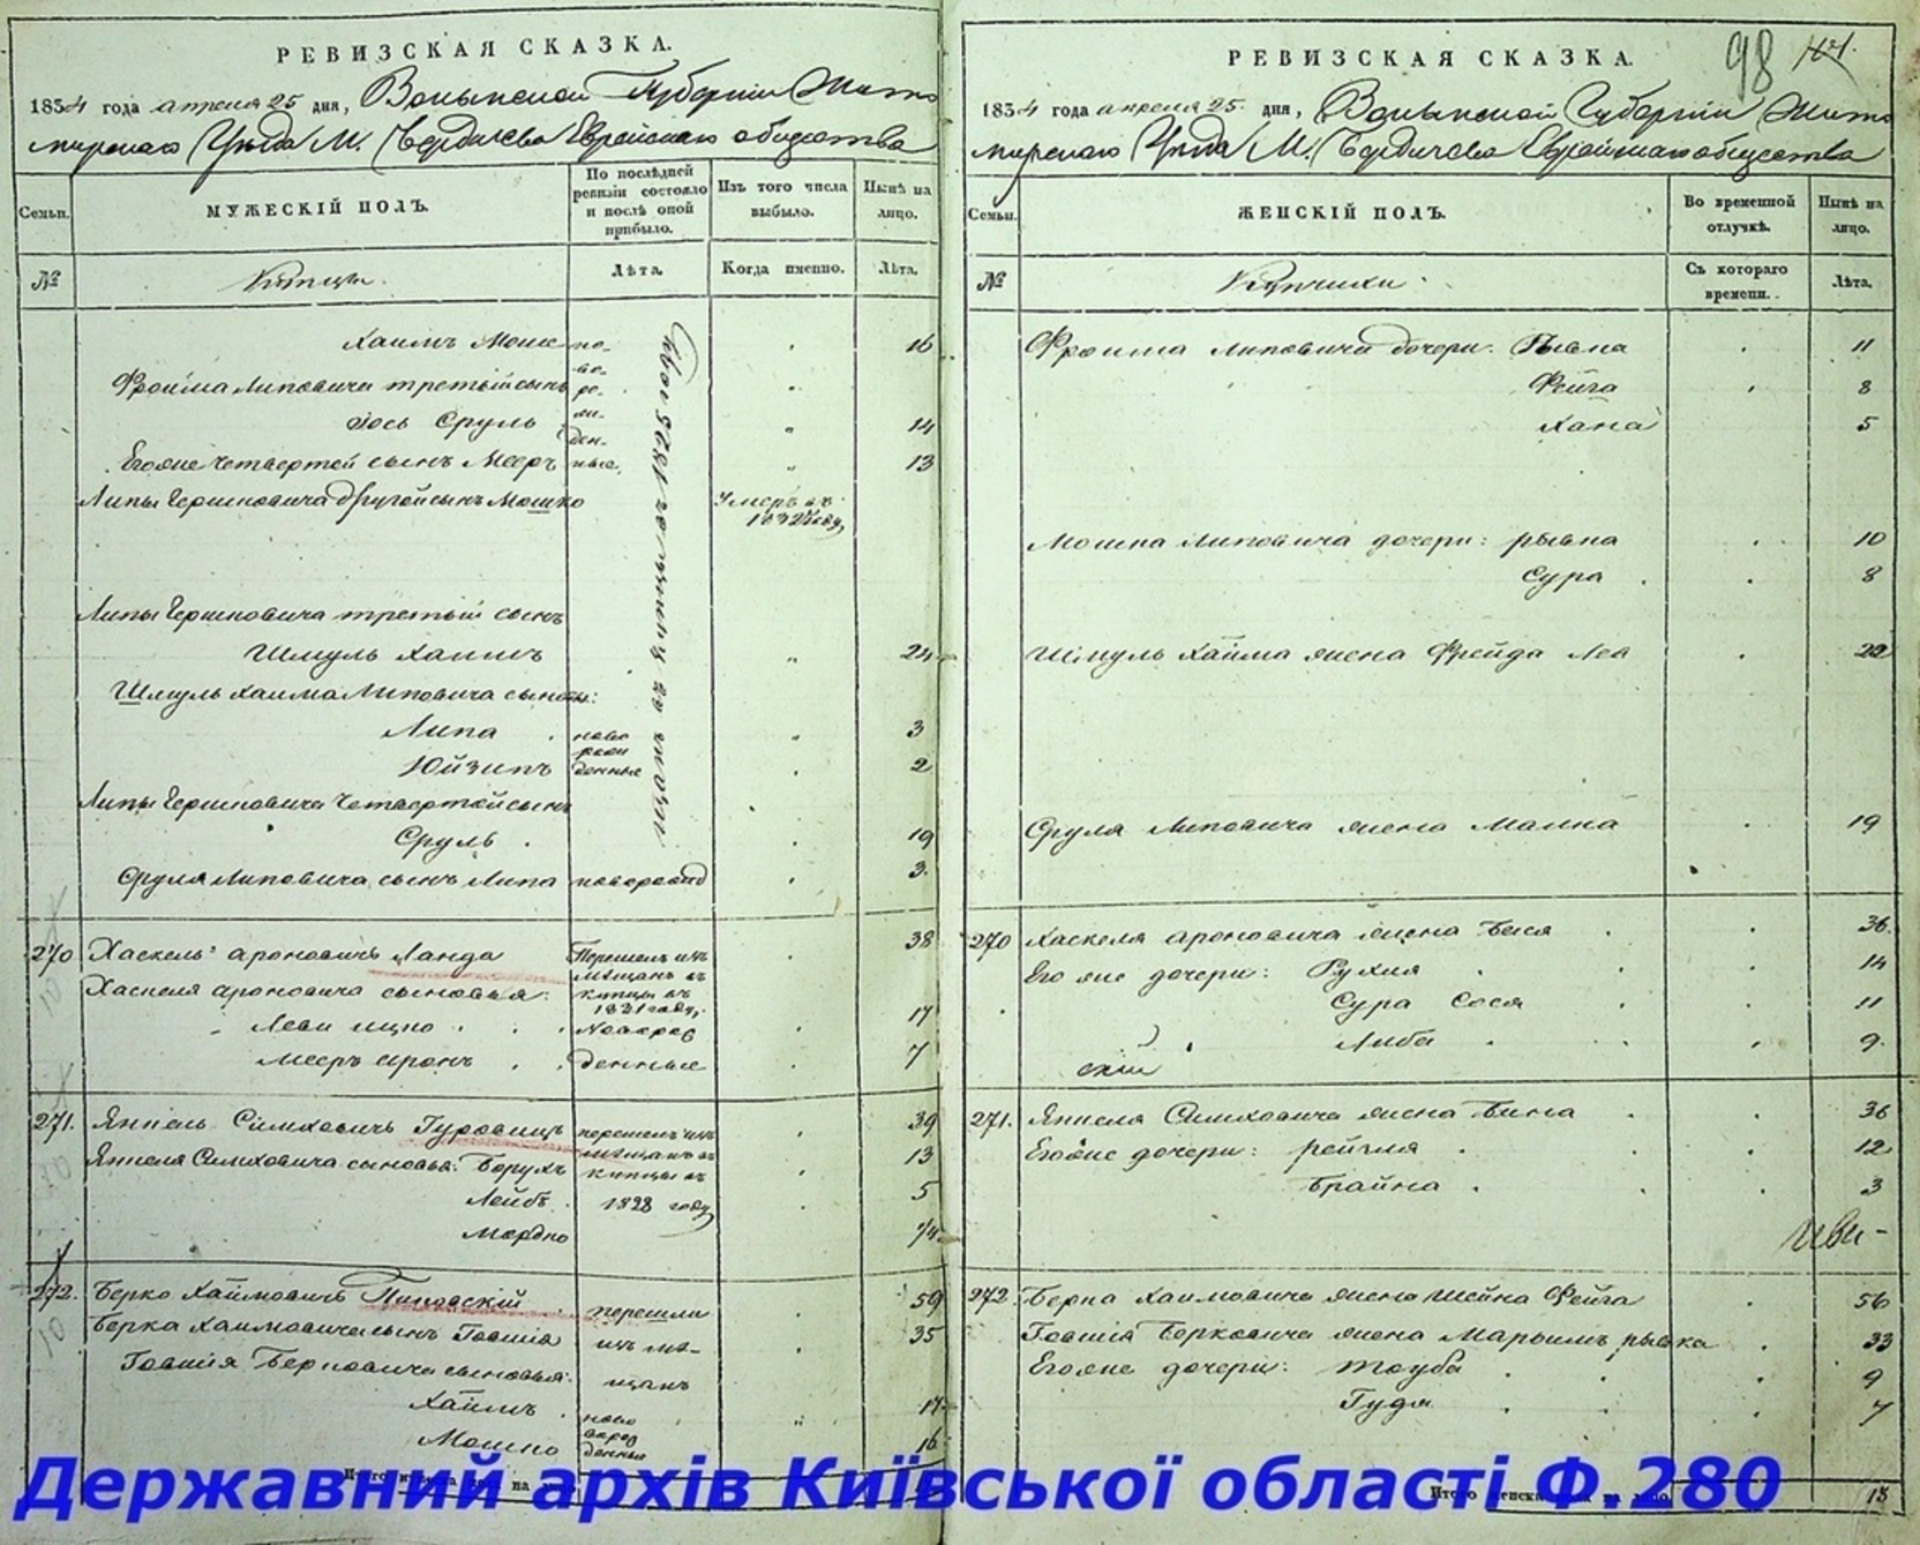 РЕВИЗСКАЯ СКАЗКА.
1834 года апреля 25 дня, Волынской Губернии Жито
мирскаго Уѣзда М. Бердичева Еврейскаго общества
Семьи.
МУЖЕСКІЙ ПОЛЪ.
По послѣдней ревизіи состояло и послѣ оной прибыло.
Изъ того числа выбыло.
Нынѣ на лицо.
№
Купцы.
Лѣта.
Когда именно.
Лѣта.
Хаимъ Мошко но- 16
Фроима Липовича третьій сынъ
Іось Сруль 14
Егоже четвертой сынъ Мееръ 13
Липы Гершковича другой сынъ Мошко Умеръ въ
1832 году
Липы Гершковича третьій сынъ
Шмуль Хаимъ 24
Шмуль Хаима Липовича сыновья:
Липа ново 3
Юйзипъ денные 2
Липы Гершковича четвертой сынъ
Сруль 19
Сруля Липовича сынъ Липа новорожд 3
270 Хаскель Ароновичъ Ланда Перешелъ изъ мѣщанъ въ купцы въ 1831 году, 38
Хаскеля Ароновича сыновья:
Леви Ицко Новорож 17
Мееръ Аронъ денные 7
271. Янкель Симховичъ Гуровицъ перешелъ изъ мѣщанъ въ купцы въ 1828 году 39
Янкеля Симховича сыновья: Борухъ 13
Лейбъ 5
Мордко 1/4
272. Берко Хаймовичъ перешли 59
Берка Хаимовича сынъ Говшія изъ мѣ- 35
Говшія Берковича сыновья: щанъ
Хаймъ 17
Мошко денные 16
РЕВИЗСКАЯ СКАЗКА.
98
1834 года апреля 25 дня, Волынской Губерніи Жито
мирскаго Уѣзда М. Бердичева Еврейскаго общества
Семьи.
ЖЕНСКІЙ ПОЛЪ.
Во временной отлучкѣ.
Нынѣ на лицо.
№
Купчихи.
Съ котораго времени.
Лѣта.
Фроима Липовича дочери: Рывка 11
Фейга 8
Хана 5
Мошка Липовича дочери: Рывка 10
Сура 8
Шмуль Хайма жена Фрейда Леа 22
Сруля Липовича жена Малка 19
270 Хаскеля Ароновича жена Бися 36
Его же дочери: Рухля 14
Сура Сося 11
Либа 9
скій
271. Янкеля Симховича жена Бина 36
Егоже дочери: Рейзля 12
Брайна 3
272 Берка Хаимовича жена Шейна Фейга 56
Говшія Берковича жена Марьимъ Рывка 33
Егоже дочери: Тауба 9
Гудя 7
18
Державний архів Київської області Ф.280